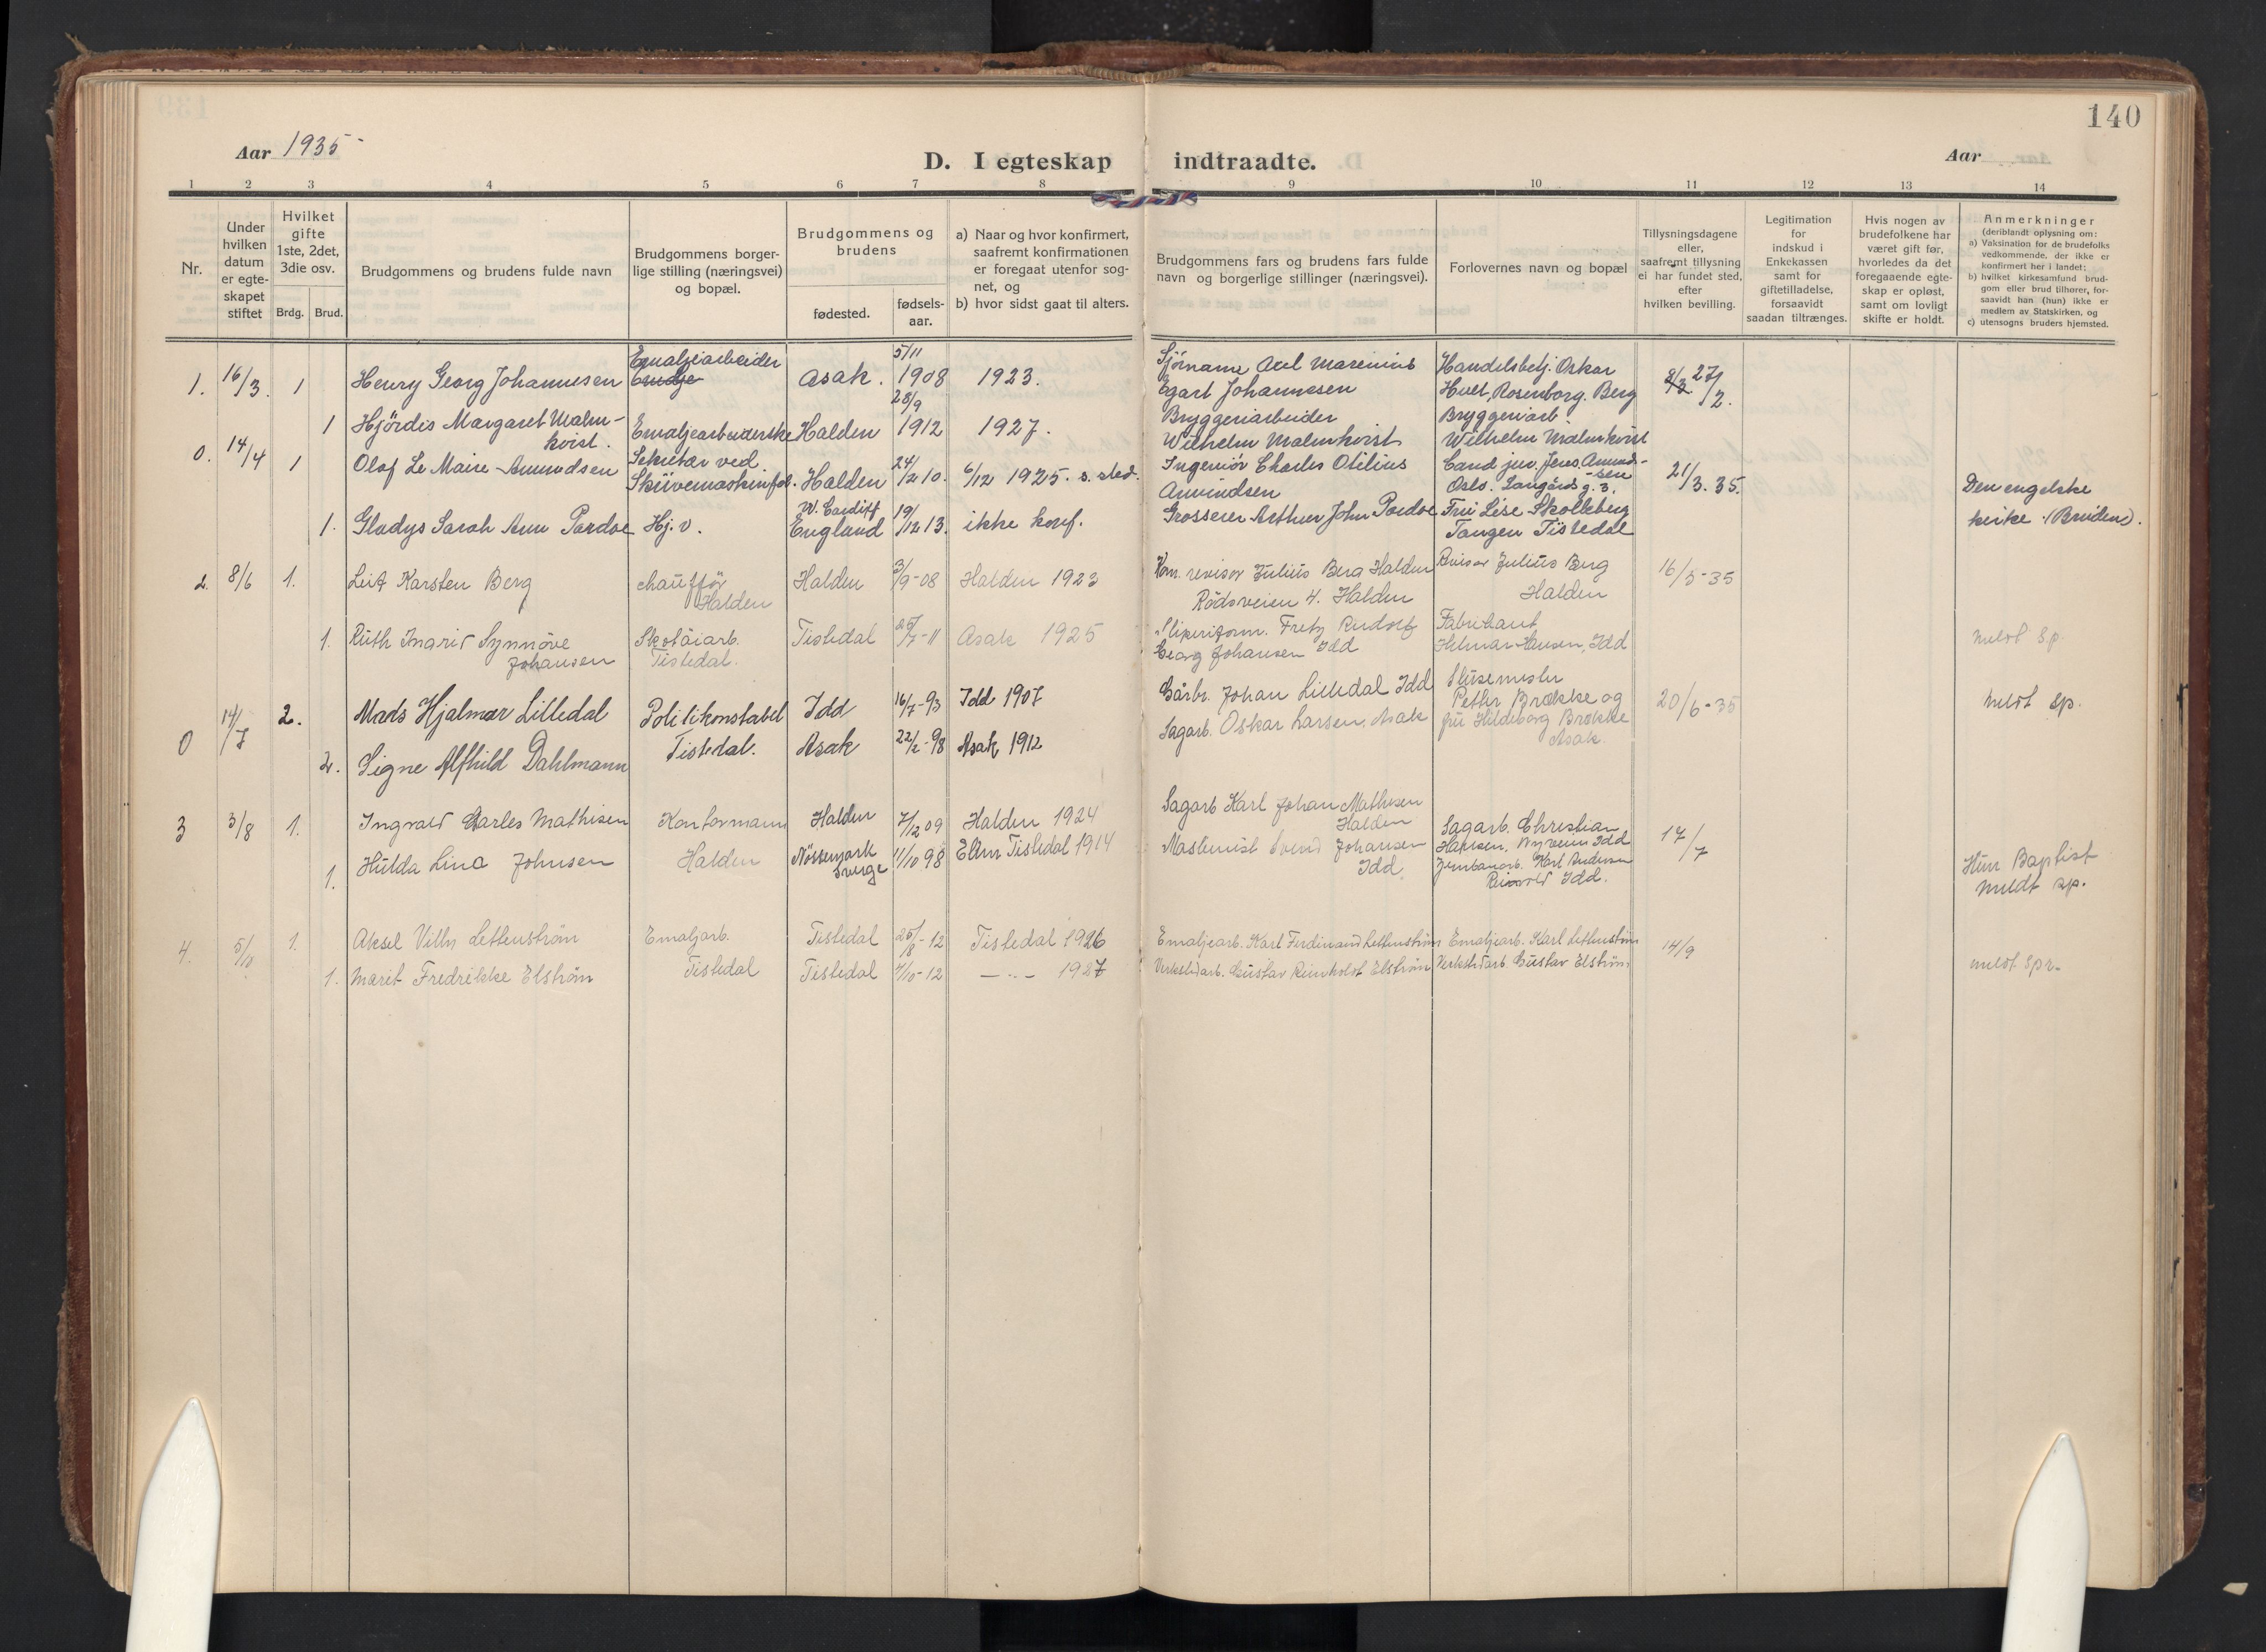 140
Aar 1935
D. I egteskap indtraadte.
Aar
1 2 3 4 5 6 7 8 9 10 11 12 13 14
Nr.
Under
hvilken
datum
er egte-
skapet
stiftet
Hvilket
gifte
1ste, 2det,
3die osv.
Brdg. Brud.
Brudgommens og brudens fulde navn
Brudgommens borger-
lige stilling (næringsvei)
og bopæl.
Brudgommens og
brudens
fødested.
fødsels-
aar.
a) Naar og hvor konfirmert,
saafremt konfirmationen
er foregaat utenfor sog-
net, og
b) hvor sidst gaat til alters.
Brudgommens fars og brudens fars fulde
navn og borgerlige stillinger (næringsvei).
Forlovernes navn og bopæl
Tillysningsdagene
eller,
saafremt tillysning
ei har fundet sted,
efter
hvilken bevilling.
Legitimation
for
indskud i
Enkekassen
samt for
giftetilladelse,
forsaavidt
saadan tiltrænges.
Hvis nogen av
brudefolkene har
været gift før,
hvorledes da det
foregaaende egte-
skap er opløst,
samt om lovligt
skifte er holdt.
Anmerkninger
(deriblandt oplysning om:
a) Vaksination for de brudefolks
vedkommende, der ikke er
konfirmert her i landet;
b) hvilket kirkesamfund brud-
gom eller brud tilhører, for-
saavidt han (hun) ikke er
medlem av Statskirken, og
c) utensogns bruders hjemsted.
1. 16/3. 1 Henry Georg Johannesen
Emaljearbeider
Asak.
5/11
1908
1923.
Sjömann Axel Marenius
Egart Johannesen
Handelsbetj. Oskar
Hvet, Rosenborg. Berg
27/2.
1 Hjördis Margaret Malm-
kvist.
Emaljearbeiderske
Halden
28/9
1912
1927.
Bryggeriarbeider
Wilhelm Malmkvist
Bryggeriarb.
Wilhelm Malmkvist
0. 14/4 1 Olaf Le Maire Amundsen
Sekretær ved
Skrivemaskinfab.
Halden
24/12 10.
6/12 1925. s. sted.
Ingeniör Charles Otilius
Amundsen
Cand jur. Jens Amund-
sen
Oslo. Langårds g. 3.
21/3. 35.
1. Gladys Sarah Ann Pardoe
Hj. v.
W. Cardiff
England
19/12 13.
ikke konf.
Grosserer Arthur John Pardoe
Frü Lise Skolleborg
Tangen Tistedal
Den engelske
kirke. (Bruden).
2. 8/6 1. Leif Karsten Berg
chaufför
Halden
Halden
3/9-08
Halden 1923
Kom. revisor Julius Berg Halden
Rödsveien 4. Halden
Revisor Julius Berg
Halden
16/5-35
1. Ruth Ingrid Synnöve
Johansen
Skotöiarb.
Tistedal.
Tistedal
25/7-11
Asak 1925
Sliperiform. Fretz Rudolf
Georg Johansen Idd
Fabrikant
Hilmar Hansen, Idd
meldt Sp.
0 14/7 2. Mads Hjalmar Lilledal
Politikonstabel
Tistedal.
Idd
16/7-93
Idd 1907
Gårbr. Johan Lilledal Idd
Slusemester
Petter Brække og
fru Hildeborg Brække
Asak.
20/6-35
meldt sp.
2. Signe Alfhild Dahlmann
Asak
22/2-98
Asak 1912
Sagarb. Oskar Larsen, Asak
3 3/8 1. Ingvald Carles Mathisen
Kontormann
Halden
Halden
7/12 09
Halden 1924
Sagarb Karl Johan Mathisen
Halden
Sagarb. Christian
Hansen, Nyveien Idd
17/7
1. Hulda Lina Johnsen
Nössemark
Sverge
11/10 98
Elim Tistedal 1914
Maskinist Svend Johansen
Idd.
Jernbanarb. Karl Andersen
Reisvold Idd.
Hun Baptist
meldt sp.
4. 5/10 1. Aksel Vilh Lettenström
Emaljarb.
Tistedal
Tistedal
25/8-12
Tistedal 1926
Emaljearb. Karl Ferdinand Lettenström
Emaljearb. Karl Lettenström
14/9
1. Marit Fredrikke Elström
Tistedal
7/10-12
—"— 1927
Verkstedarb. Gustav Reinholdt Elström
Verkstedarb. Gustav Elström
meldt Spr.